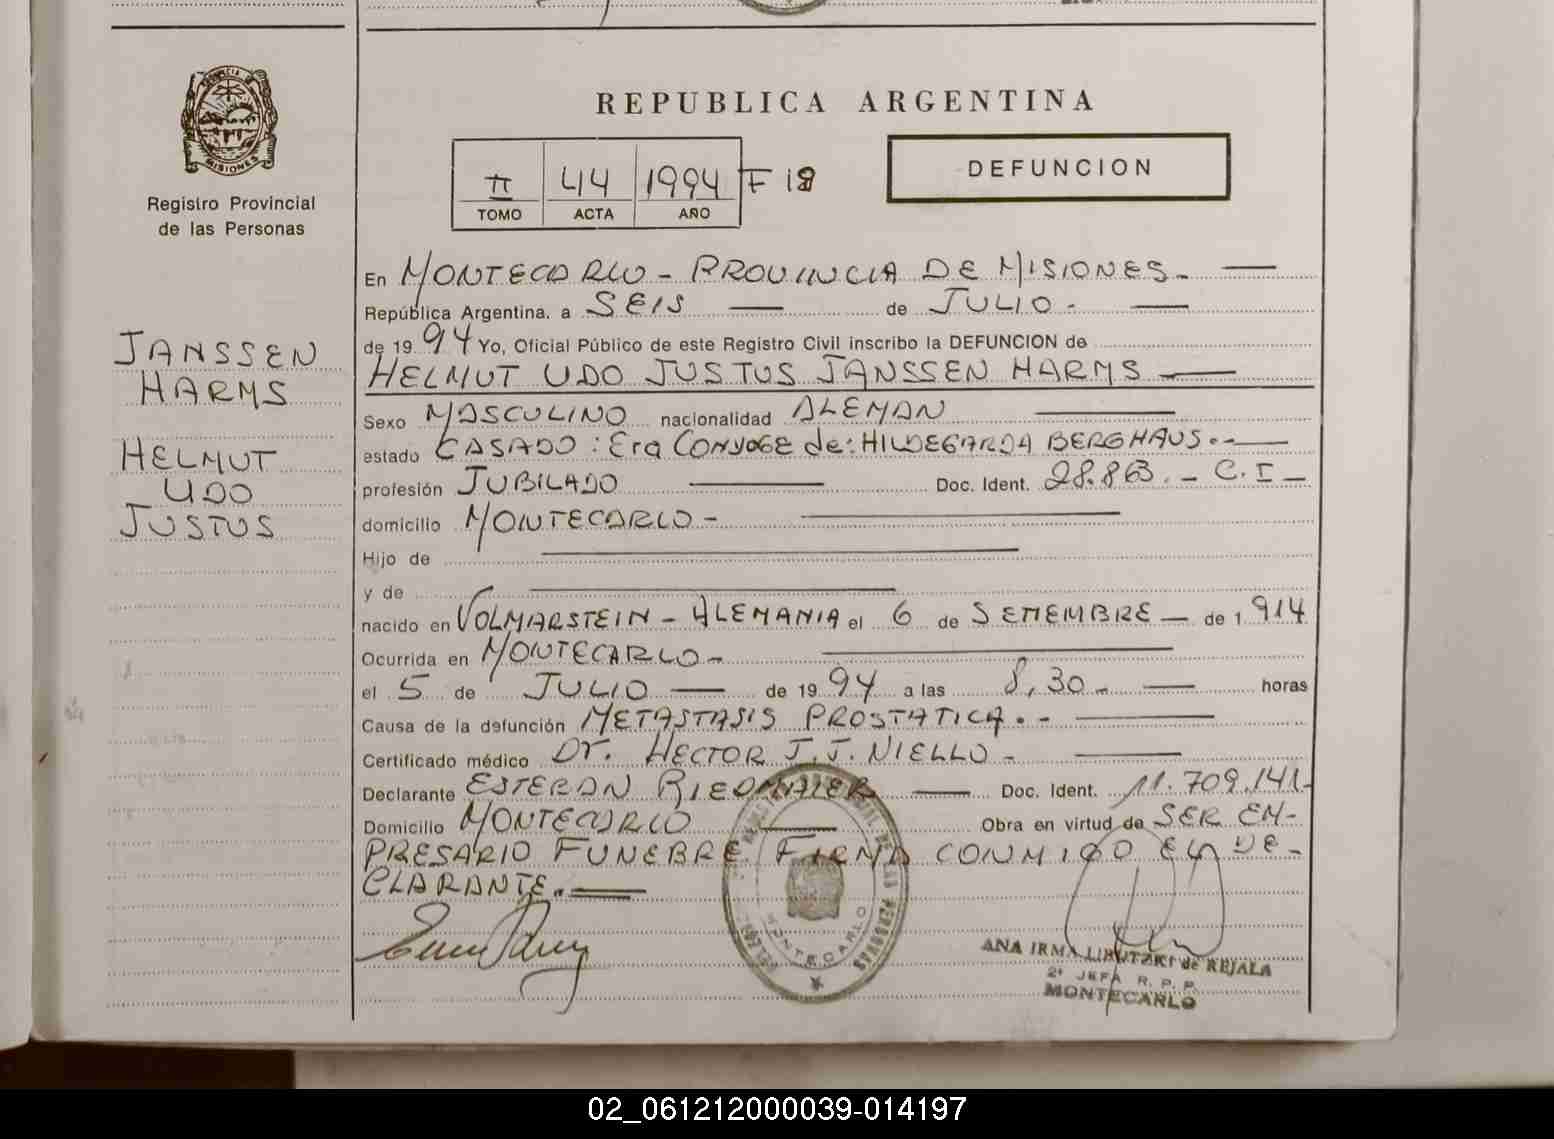 PROVINCIA DE
MISIONES
Registro Provincial
de las Personas
JANSSEN
HARMS
HELMUT
UDO
JUSTUS
REPUBLICA ARGENTINA
II 44 1994 F 19
TOMO ACTA AÑO
DEFUNCION
En MONTECARLO - PROVINCIA DE MISIONES.
República Argentina, a SEIS de JULIO -
de 1994 Yo, Oficial Público de este Registro Civil inscribo la DEFUNCION de
HELMUT UDO JUSTUS JANSSEN HARMS
Sexo MASCULINO nacionalidad ALEMAN
estado CASADO: Era CONYUGE de: HILDEGARDA BERGHAUS.-
profesión JUBILADO Doc. Ident. 28.863.- C.I -
domicilio MONTECARLO -
Hijo de
y de
nacido en VOLMARSTEIN - ALEMANIA el 6 de SETIEMBRE de 1914
Ocurrida en MONTECARLO -
el 5 de JULIO de 1994 a las 8,30 horas
Causa de la defunción METASTASIS PROSTATICA.-
Certificado médico Dr. HECTOR J. J. NIELLO -
Declarante ESTEBAN RIEDMAIER Doc. Ident. 11.709.141-
Domicilio MONTECARLO Obra en virtud de SER EM-
PRESARIO FUNEBRE. FIRMA CONMIGO EL DE-
CLARANTE.
MONTECARLO
ANA IRMA LIPUTZKI de REJALA
2ª JEFA R. P. P.
MONTECARLO
02_061212000039-014197